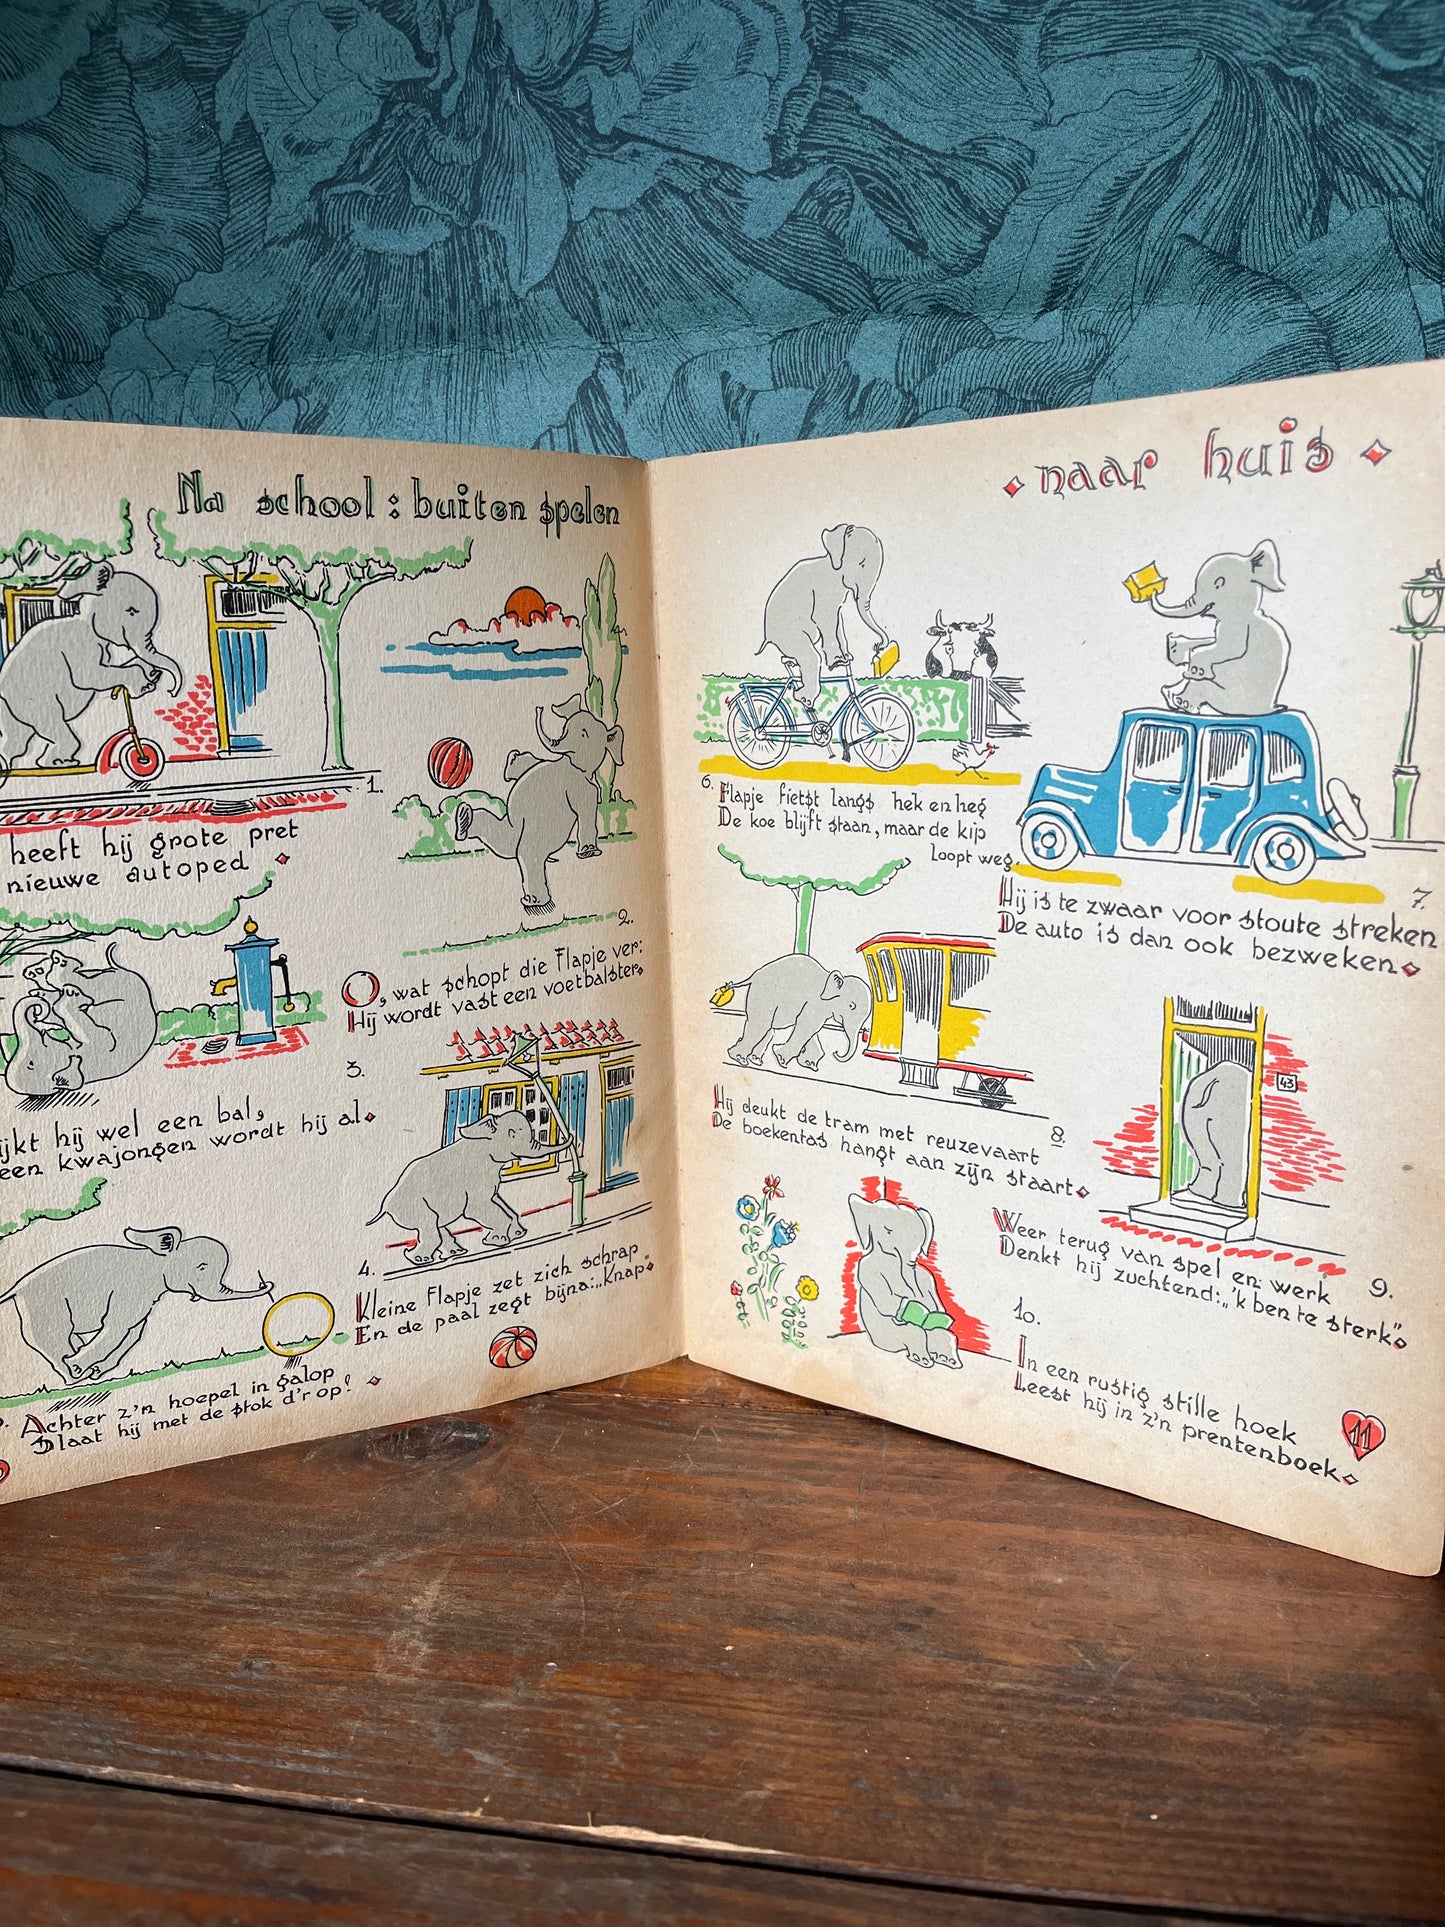 Na school: buiten spelen
1.
heeft hij grote pret
nieuwe autoped
2.
O, wat schopt die Flapje ver:
Hij wordt vast een voetbalster.
3.
hij wel een bal,
een kwajongen wordt hij al.
4.
Kleine Flapje zet zich schrap
En de paal zegt bijna: „Knap"
Achter z'n hoepel in galop
Slaat hij met de stok d'r op!
naar huis
6.
Flapje fietst langs hek en heg
De koe blijft staan, maar de kip
loopt weg.
7.
Hij is te zwaar voor stoute streken
De auto is dan ook bezweken
8.
Hij deukt de tram met reuzevaart
De boekentas hangt aan zijn staart
43
9.
Weer terug van spel en werk
Denkt hij zuchtend: „'k ben te sterk"
10.
In een rustig stille hoek
Leest hij in z'n prentenboek
11